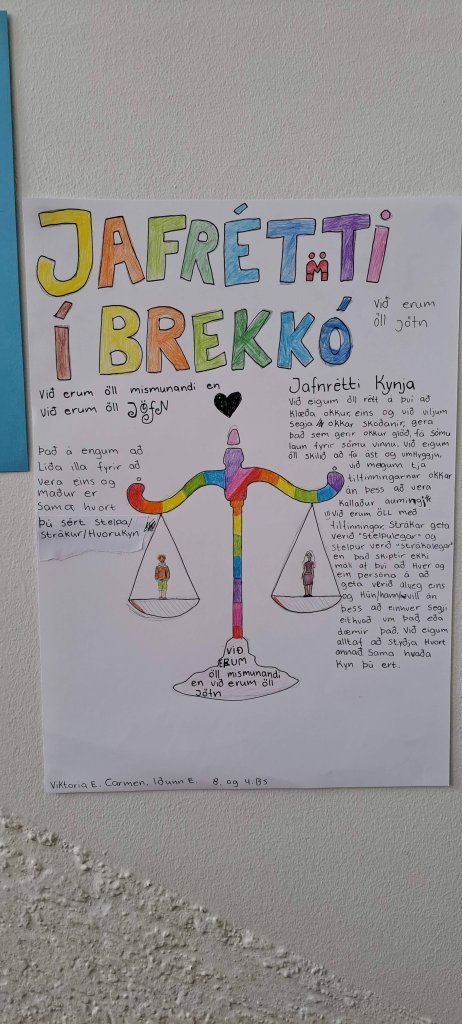 JAFRÉTTI
Í BREKKÓ
Við erum
öll jöfn
Við erum öll mismunandi en
Við erum öll JÖFN
Það á engum að
Líða illa fyrir að
vera eins og
maður er
Sama hvort
þú sért Stelpa/
Strákur/Hvorukyn
Jafnrétti Kynja
Við eigum öll rétt á því að
Klæða okkur eins og við viljum
Segja okkar skoðanir, gera
það sem gerir okkur glöð, fá sömu
laun fyrir sömu vinnu. Við eigum
öll skilið að fá ást og umhyggju,
við megum tjá
tilfinningarnar okkar
án þess að vera
kallaður aumingi
Við erum ÖLL með
tilfinningar. Strákar geta
verið "Stelpulegar" og
Stelpur verið "Strákalegar"
en það skiptir ekki
máli af því að Hver og
ein persóna á að
geta verið alveg eins
og Hún/hann vill án
þess að einhver Segji
eitthvað um það, eða
dæmir það. Við eigum
alltaf að Styðja Hvort
annað Sama hvaða
Kyn þú ert.
VIÐ
ERUM
öll mismunandi
en við erum öll
Jöfn
Viktoria E. Carmen, Iðunn E. 8. og 4.BS